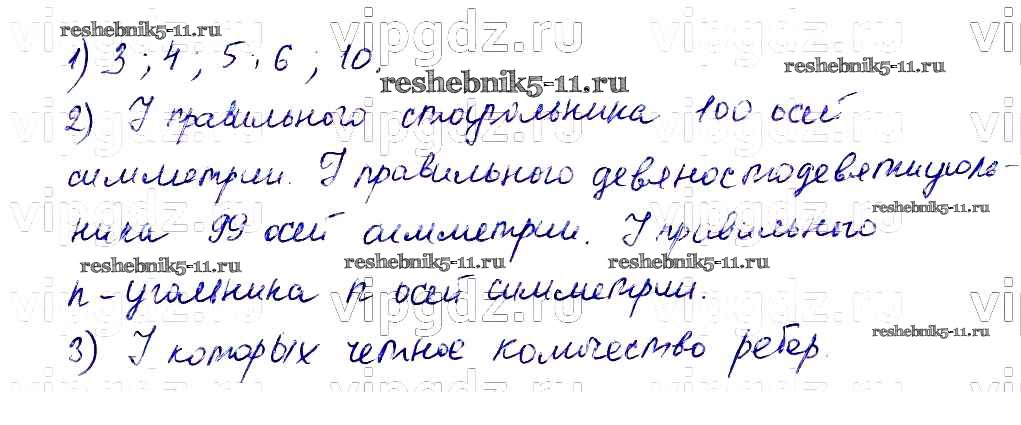 reshebnik5-11.ru
1) 3; 4; 5; 6; 10.
reshebnik5-11.ru
reshebnik5-11.ru
2) У правильного стоугольника 100 осей
симметрии. У правильного девяностодевятиуголь-
reshebnik5-11.ru
ника 99 осей симметрии. У правильного
reshebnik5-11.ru reshebnik5-11.ru reshebnik5-11.ru
n-угольника n осей симметрии.
reshebnik5-11.ru
3) У которых четное количество ребер.
vipgdz.ru